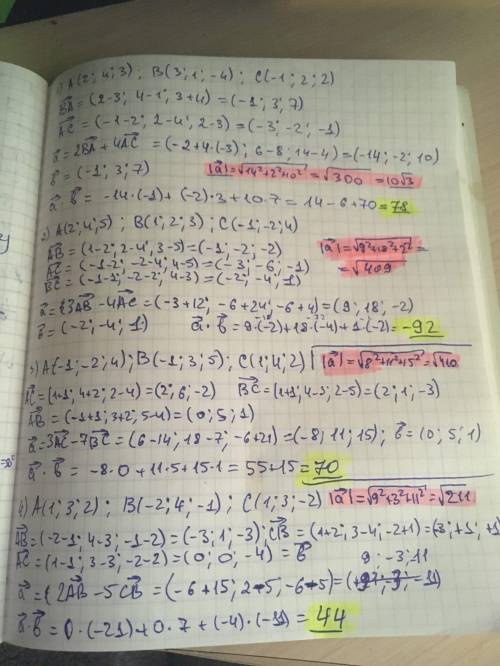 1) A(2; 4; 3) ; B(3; 1; -4) ; C(-1; 2; 2)
BA = (2-3; 4-1; 3+4) = (-1; 3; 7)
AC = (-1-2; 2-4; 2-3) = (-3; -2; -1)
a = 2BA + 4AC = (-2+4·(-3); 6-8; 14-4) = (-14; -2; 10)
b = (-1; 3; 7) |a| = √14²+2²+10² = √300 = 10√3
a · b = -14·(-1) + (-2)·3 + 10·7 = 14-6+70 = 78
2) A(2; 4; 5) ; B(1; 2; 3) ; C(-1; -2; 4)
AB = (1-2; 2-4; 3-5) = (-1; -2; -2)
AC = (-1-2; -2-4; 4-5) = (-3; -6; -1)
BC = (-1-1; -2-2; 4-3) = (-2; -4; 1)
= √409
a = 3AB - 4AC = (-3+12; -6+24; -6+4) = (9; 18; -2)
b = (-2; -4; 1) a · b = 9·(-2)+18·(-4)+1·(-2) = -92
3) A(-1; -2; 4) ; B(-1; 3; 5) ; C(1; 4; 2) |a| = √8²+11²+15² = √410
AC = (1+1; 4+2; 2-4) = (2; 6; -2) BC = (1+1; 4-3; 2-5) = (2; 1; -3)
AB = (-1+1; 3+2; 5-4) = (0; 5; 1)
a = 3AC - 7BC = (6-14; 18-7; -6+21) = (-8; 11; 15) ; b = (0; 5; 1)
a · b = -8·0 + 11·5 + 15·1 = 55+15 = 70
4) A(1; 3; 2) ; B(-2; 4; -1) ; C(1; 3; -2) |a| = √9²+3²+11² = √211
AB = (-2-1; 4-3; -1-2) = (-3; 1; -3) ; CB = (1+2; 3-4; -2+1) = (3; +1; +1)
AC = (1-1; 3-3; -2-2) = (0; 0; -4) = b 9; -3; 11
a = 2AB - 5CB = (-6+15; 2-5; -6-5) =
a · b = 0·(-21) + 0·7 + (-4)·(-11) = 44